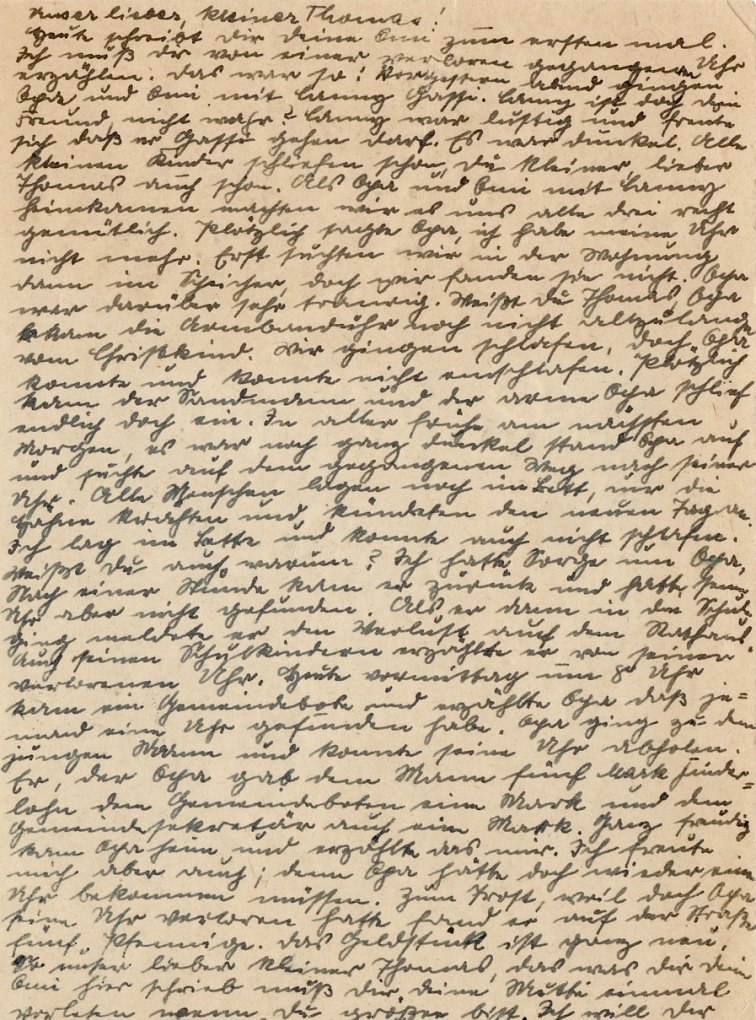 Unser lieber, kleiner Thomas!
Heute schreibt dir deine Omi zum ersten mal.
Ich muß dir von einer verloren gegangenen Uhr
erzählen. Das war so: Vorgestern abend gingen
Opa und Omi mit Lanny Gassi. Lanny ist doch dein
Freund, nicht wahr? Lanny war lustig und freute
sich daß er Gassi gehen darf. Es war dunkel. Alle
kleinen Kinder schliefen schon, du kleiner, lieber
Thomas auch schon. Als Opa und Omi mit Lanny
heimkamen machten wir es uns alle drei recht
gemütlich. Plötzlich sagte Opa, ich habe meine Uhr
nicht mehr. Erst suchten wir in der Wohnung
dann im Speicher, doch wir fanden sie nicht. Opa
war darüber sehr traurig. Weißt du Thomas, Opa
bekam die Armbanduhr noch nicht allzulange
vom Christkind. Wir gingen schlafen, doch Opa
konnte und konnte nicht einschlafen. Plötzlich
kam der Sandmann und der arme Opa schlief
endlich doch ein. In aller frühe am nächsten
Morgen, es war noch ganz dunkel stand Opa auf
und suchte auf dem gegangenen Weg nach seiner
Uhr. Alle Menschen lagen noch im Bett, nur die
Hähne krähten und kündeten den neuen Tag an.
Ich lag im Bette und konnte auch nicht schlafen.
Weißt du auch warum? Ich hatte Sorge um Opa,
Nach einer Stunde kam er zurück und hatte seine
Uhr aber nicht gefunden. Als er dann in die Schule
ging meldete er den Verlust auch dem Rathaus.
Auch seinen Schulkindern erzählte er von seiner
verlorenen Uhr. Heute vormittag um 8 Uhr
kam ein Gemeindebote und erzählte Opa daß je=
mand eine Uhr gefunden habe. Opa ging zu dem
jungen Mann und konnte seine Uhr abholen.
Er, der Opa gab dem Mann fünf Mark Finder=
lohn dem Gemeindeboten eine Mark und dem
Gemeindesekretär auch eine Mark. Ganz freudig
kam Opa heim und erzählte das mir. Ich freute
mich aber auch; denn Opa hätte doch wieder eine
Uhr bekommen müssen. Zum Trost, weil doch Opa
seine Uhr verloren hatte fand er auf der Straße
fünf Pfennige. Das Geldstück ist ganz neu.
So unser lieber kleiner Thomas, das was dir dein
Omi hier schrieb muß dir deine Mutti einmal
vorlesen wenn du größer bist. Ich will der